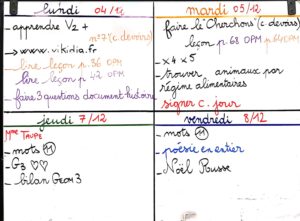 lundi 04/12
- apprendre V2 +
n°27 (c.devoirs)
→ www.vikidia.fr
- lire leçon p.36 OPM
- lire leçon p.42 OPM
- faire 3 questions document histoire
mardi 05/12
faire le Cherchons (c.devoirs)
leçon p.63 OPM p.64 OPM
- x4 x5
- trouver animaux par
régime alimentaires
signer c. jour
jeudi 7/12
Mme TAUPE
- mots 11
- G3 ♡♡
- bilan Geom 3
vendredi 8/12
- mots 11
- poésie en entier
- Noël Russe